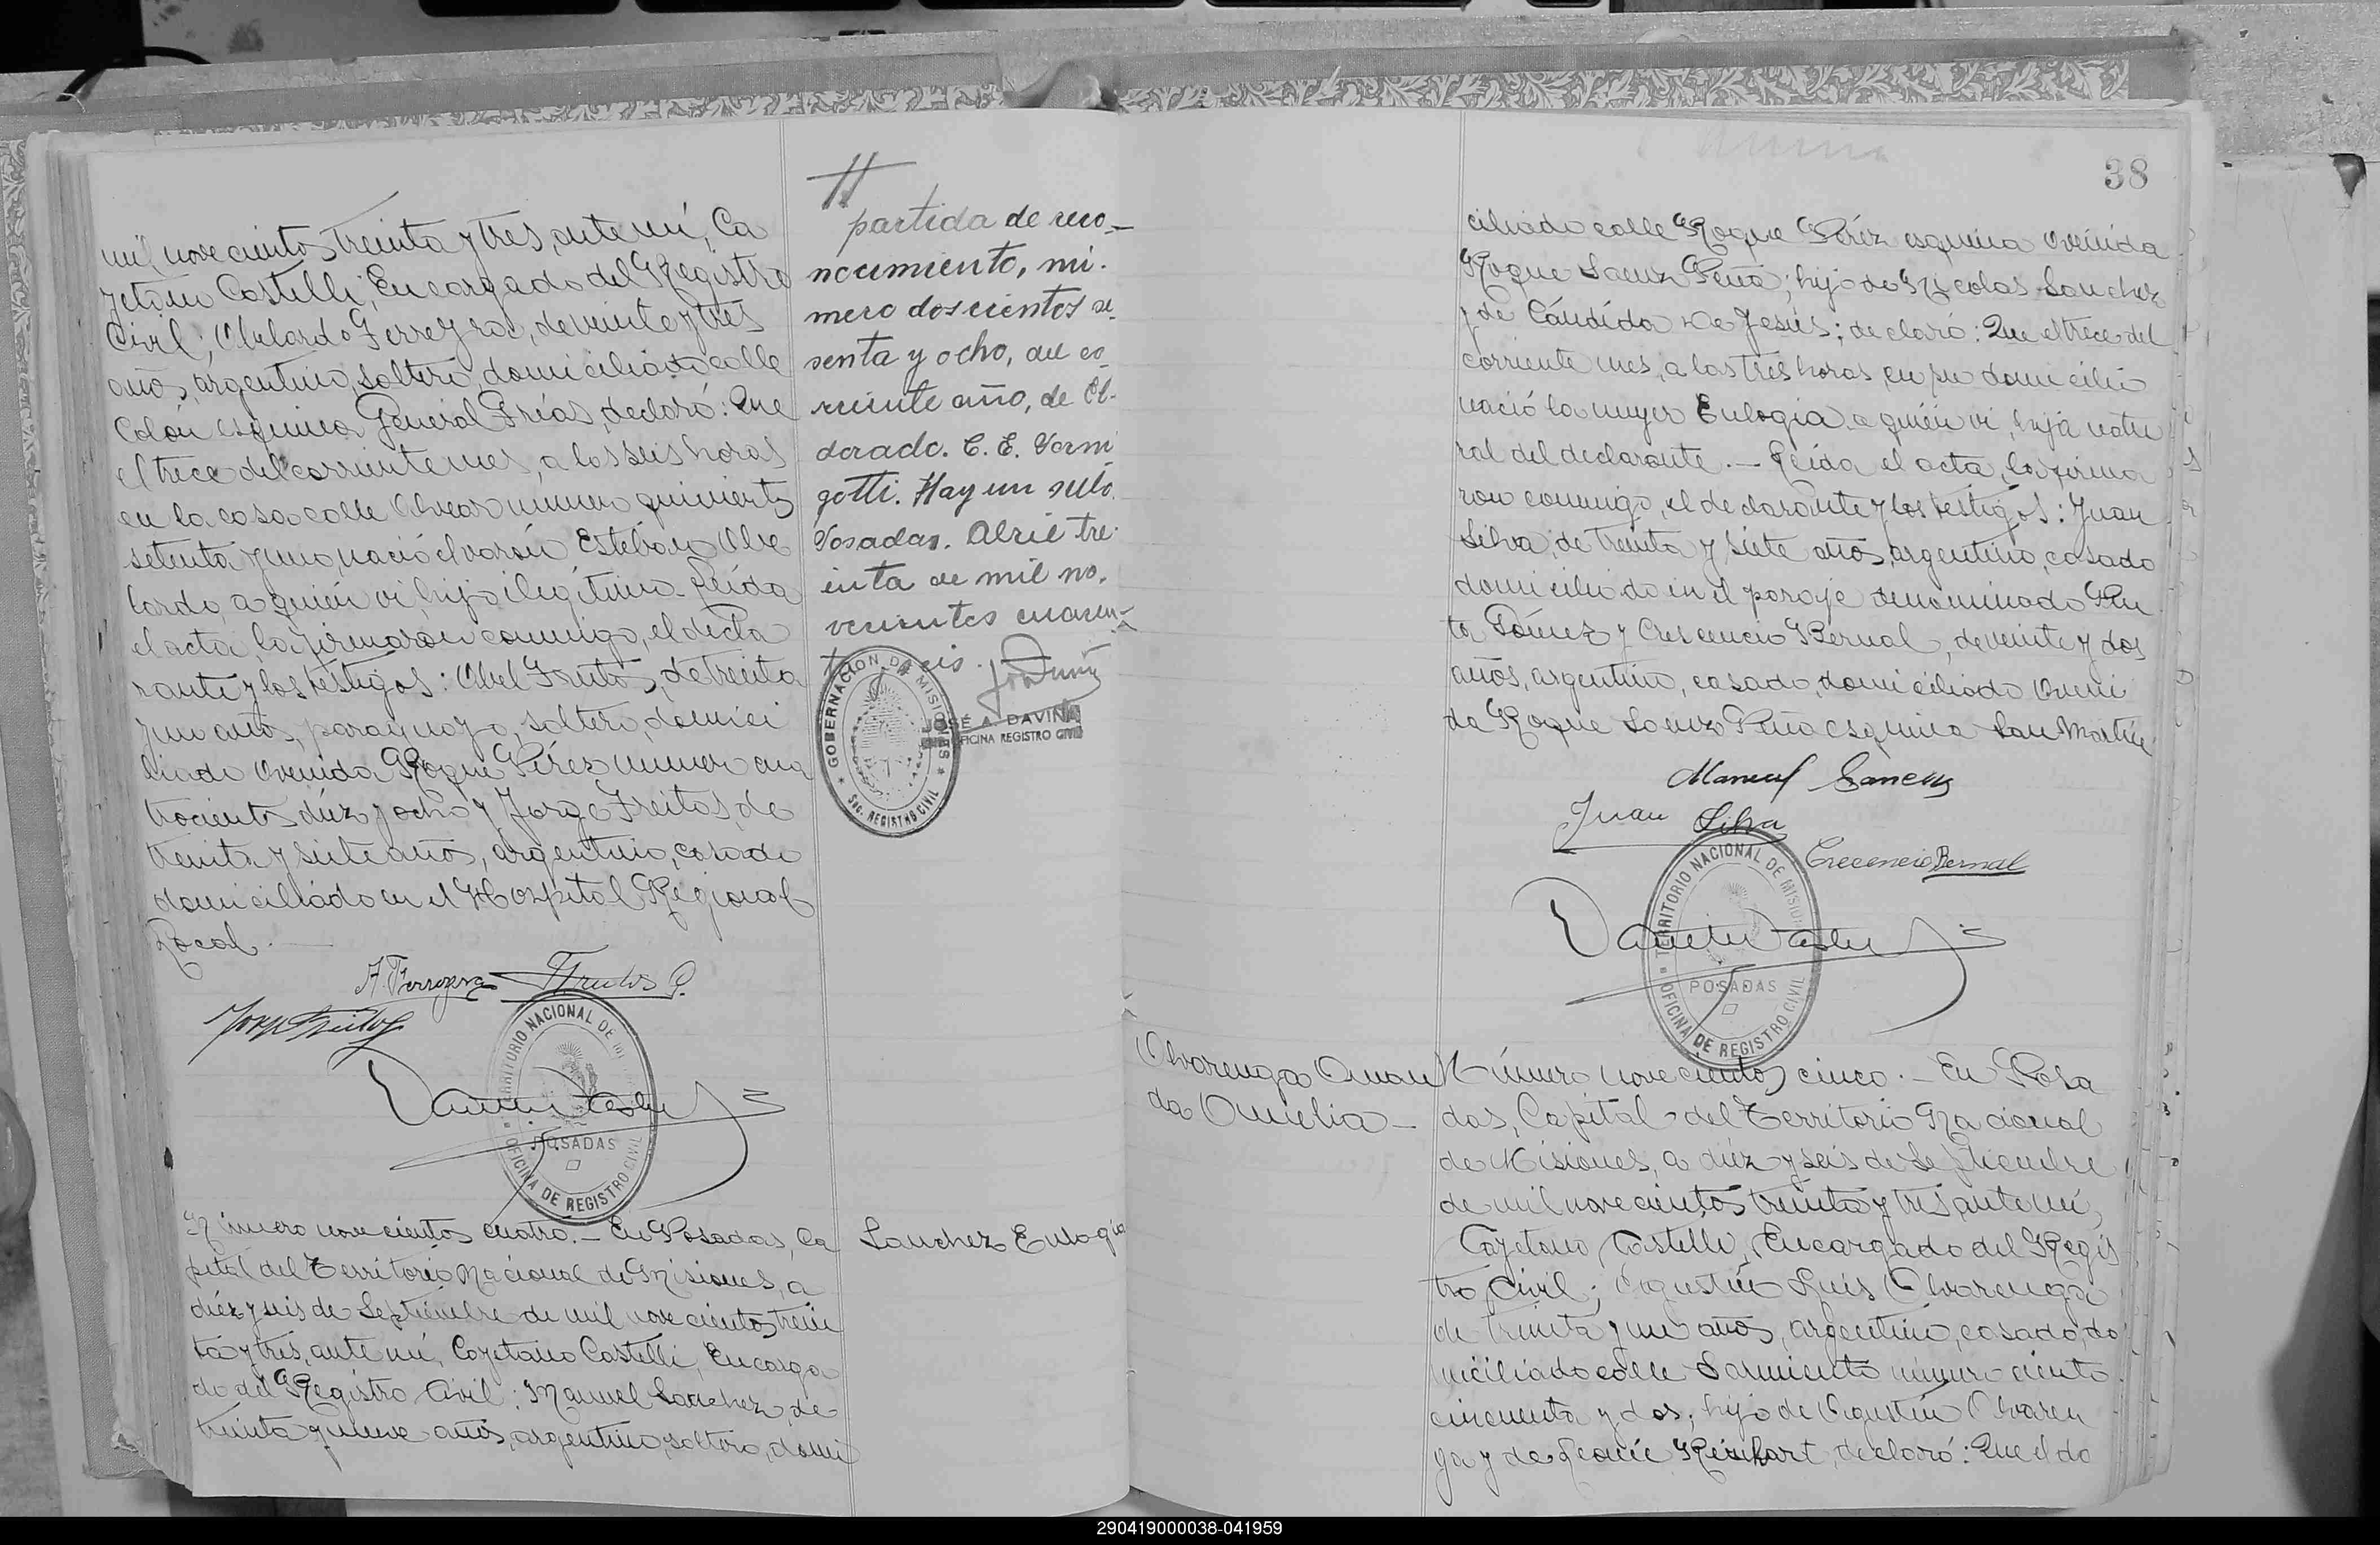 mil novecientos treinta y tres, ante mí, Ca
yetano Castelli, Encargado del Registro
Civil; Abelardo Ferreyra, de veinte y tres
años, argentino, soltero, domiciliado calle
Colón esquina General Frías, declaró: Que
el trece del corriente mes, a las seis horas
en la casa calle Alvear número quinientos
setenta y uno nació el varón Estéban Abe
lardo, a quién vi, hijo ilegítimo. Leída
el acta, la firmaron conmigo, el decla
rante y los testigos: Abel Frutos, de treinta
y un años, paraguayo, soltero, domici
liado Avenida Roque Pérez número cua
trocientos diéz y ocho y Jorge Freitas, de
treinta y siete años, argentino, casado
domiciliado en el Hospital Regional
Local.
A. Ferreyra Frutos
Jorge Freitas
TERRITORIO NACIONAL DE
POSADAS
OFICINA DE REGISTRO CIVIL
Número novecientos cuatro. — En Posadas, Ca
pital del Territorio Nacional de Misiones, a
diéz y seis de Septiembre de mil novecientos trein
ta y tres, ante mí, Cayetano Castelli, Encarga
do del Registro Civil; Manuel Sanchez, de
treinta y nueve años, argentino, soltero, domi
partida de reco_
nocimiento, nú.
mero doscientos se_
senta y ocho, del co_
rriente año, de El-
dorado. C. E. Vermi
gotti. Hay un sello.
Posadas. Abril tre-
inta de mil no.
vecientos cuaren_
GOBERNACION DE MISIONES
Sec. REGISTRO CIVIL
JOSÉ A. DAVIÑA
OFICINA REGISTRO CIVIL
Sanchez Eulogia
38
ciliado calle Roque Pérez esquina Avenida
Roque Saenz Peña; hijo de Nicolas Sanchez
y de Cándida De Jesús; declaró: Que el trece del
corriente mes, a las tres horas, en su domicilio
nació la mujer Eulogia, a quién vi, hija natu
ral del declarante. — Leída el acta, la firma
ron conmigo, el declarante y los testigos: Juan
Silva, de treinta y siete años, argentino, casado
domiciliado en el paraje denominado Pun
ta Gómez y Crescencio Bernal, de veinte y dos
años, argentino, casado, domiciliado Aveni
da Roque Saenz Peña esquina San Martín
Manuel Sanchez
Juan Silva
Crecencio Bernal
TERRITORIO NACIONAL DE MISIONES
POSADAS
OFICINA DE REGISTRO CIVIL
Alvarenga Aman
da Amelia —
Número novecientos cinco. — En Posa
das, Capital del Territorio Nacional
de Misiones, a diéz y seis de Septiembre
de mil novecientos treinta y tres, ante mí,
Cayetano Castelli, Encargado del Regis
tro Civil; Agustín Luis Alvarenga
de treinta y un años, argentino, casado, do
miciliado calle Sarmiento número ciento
cincuenta y dos; hijo de Agustín Alvaren
ga y de Leonie Reinhart, declaró: Que el do
290419000038-041959